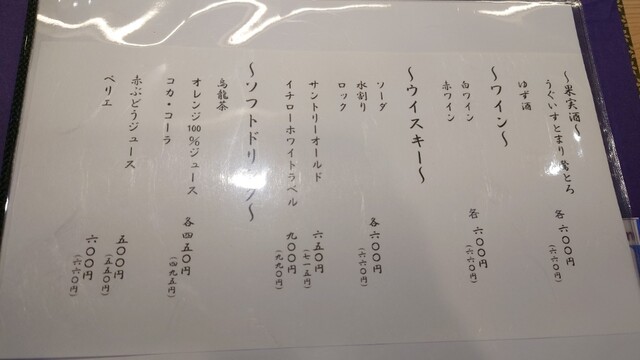 ～果実酒～
うぐいすとまり鶯とろ
ゆず酒
各 六〇〇円
（六六〇円）
～ワイン～
白ワイン
赤ワイン
各 六〇〇円
（六六〇円）
～ウイスキー～
ソーダ
水割り
ロック
各 六〇〇円
（六六〇円）
サントリーオールド
六五〇円
（七一五円）
イチローホワイトラベル
九〇〇円
（九九〇円）
～ソフトドリンク～
烏龍茶
オレンジ100％ジュース
コカ・コーラ
各 四五〇円
（四九五円）
赤ぶどうジュース
五〇〇円
（五五〇円）
ペリエ
六〇〇円
（六六〇円）